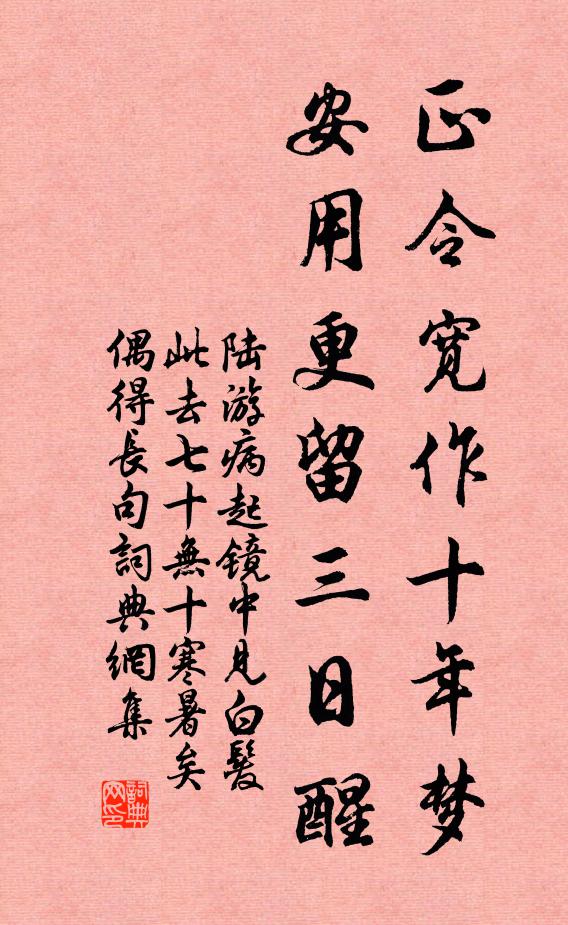 正令寬作十年梦
安用更留三日醒
陆游病起镜中見白髮
此去七十無十寒暑矣
偶得長句詞典網集
詞典网印